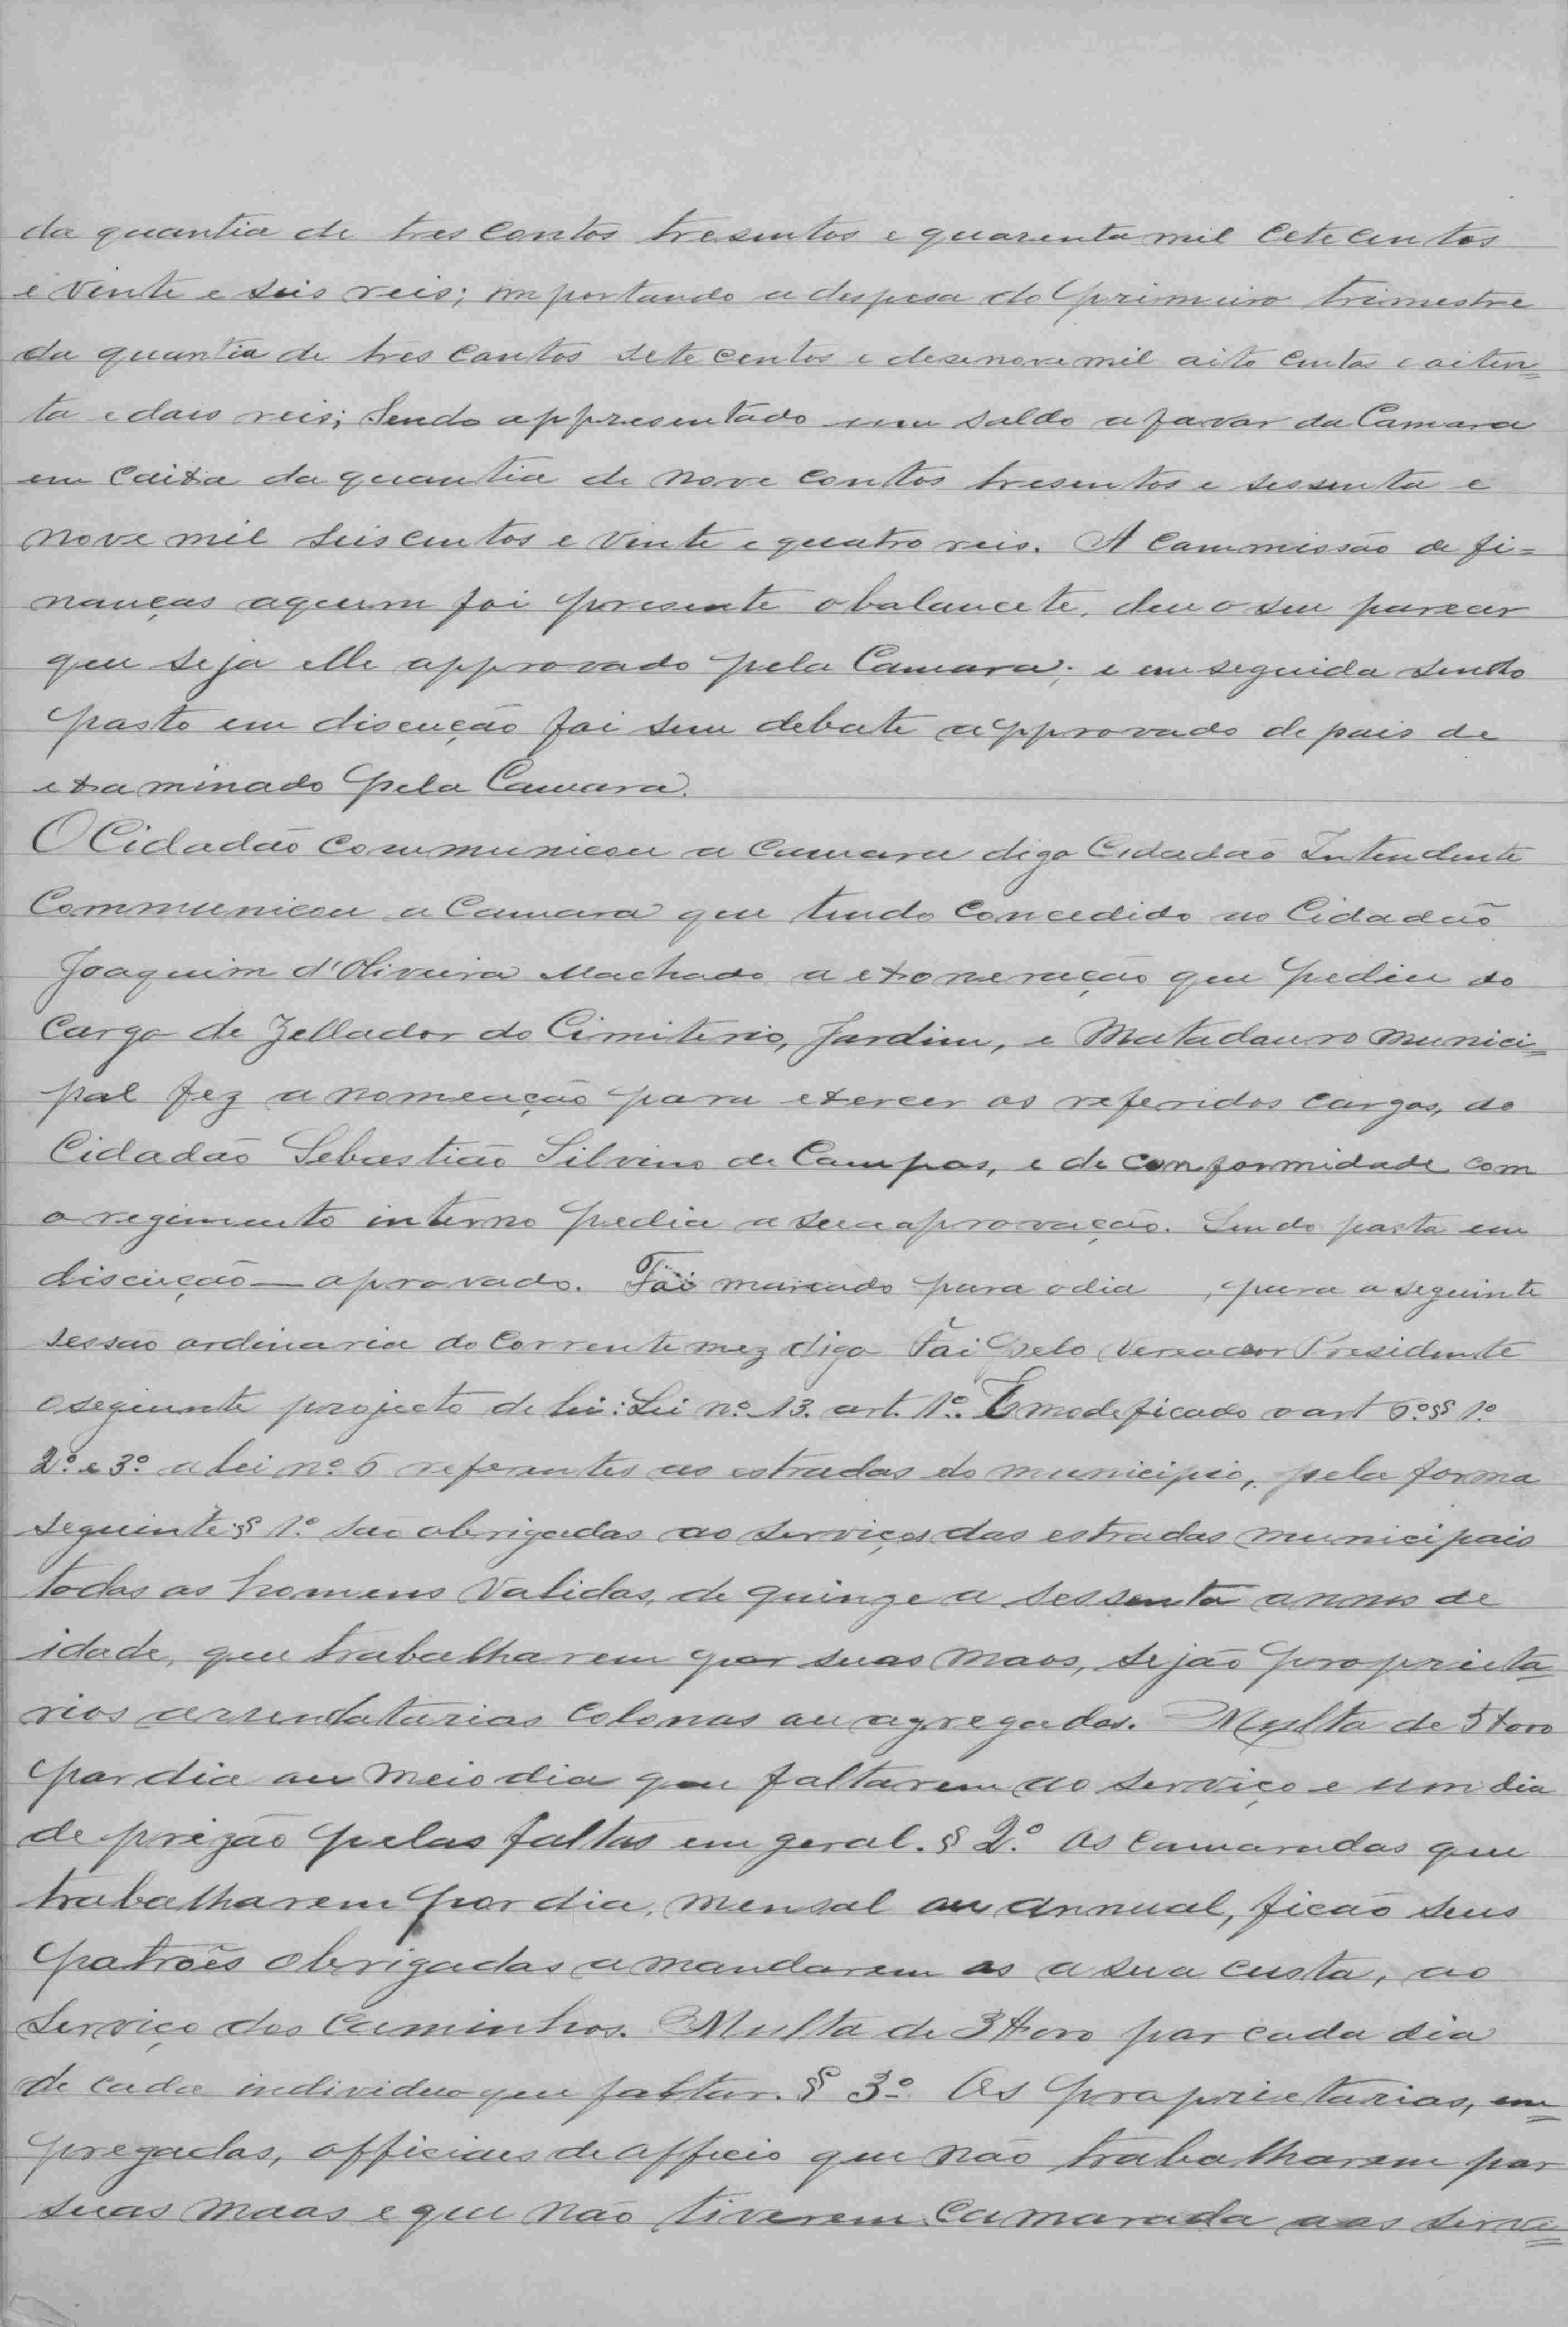 da quantia de tres contos tresentos e quarenta mil cetecentos
e vinte e seis reis; importando a despesa do primeiro trimestre
da quantia de tres contos setecentos e desenove mil oito centos e oiten=
ta e dois reis; Sendo appresentado um saldo a favor da Camara
em caixa da quantia de nove contos tresentos e sessenta e
nove mil seiscentos e vinte e quatro reis. A Commissão de fi=
nanças aquem foi presente o balancete, deu o seu parecer
que seja elle approvado pela Camara; e em seguida sendo
posto em discução foi sem debate approvado depois de
examinado pela Camara.
O Cidadão Communicou a Camara digo Cidadão Intendente
Communicou a Camara que tendo concedido ao Cidadão
Joaquim d'Oliveira Machado a exoneração que pediu do
cargo de Zellador do Cimiterio, Jardim, e Matadouro Munici=
pal fez a nomeação para exercer os referidos cargos, do
Cidadão Sebastião Silvino de Campos, e de conformidade com
o regimento interno pedia a sua aprovação. Sendo posta em
discução — aprovado. Foi marcado para o dia , para a seguinte
sessão ordinaria do corrente mez digo Foi pelo Vereador Presidente
o seguinte projecto de lei: Lei nº 13. art. 1º. É modeficado o art 6º §§ 1º
2º e 3º a lei nº 6 referentes as estradas do municipio, pela forma
seguinte: § 1º são obrigados ao serviços das estradas municipais
todos os homens validos, de quinze a sessenta annos de
idade, que trabalharem por suas maos, sejão proprieta=
rios arrendatarios colonos ou agregados. Multa de 5$000
por dia ou meio dia que faltarem ao serviço e um dia
de prizão pelas faltas em geral. § 2º. Os camaradas que
trabalharem por dia, mensal ou annual, ficão seus
patrões obrigados a mandarem os a sua custa, ao
serviço dos caminhos. Multa de 3$000 por cada dia
de cada individuo que faltar. § 3º Os proprietarios, em=
pregados, officiaes de officio que não trabalharem por
suas maos e que não tiverem camarada aos servi=